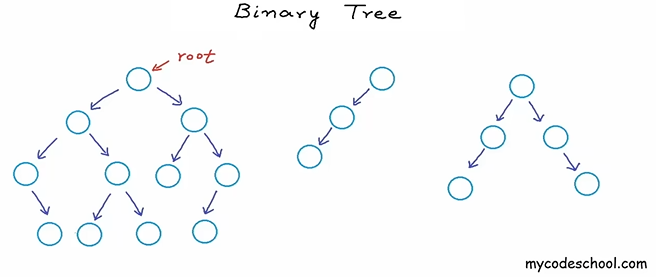 Binary Tree
root
mycodeschool.com